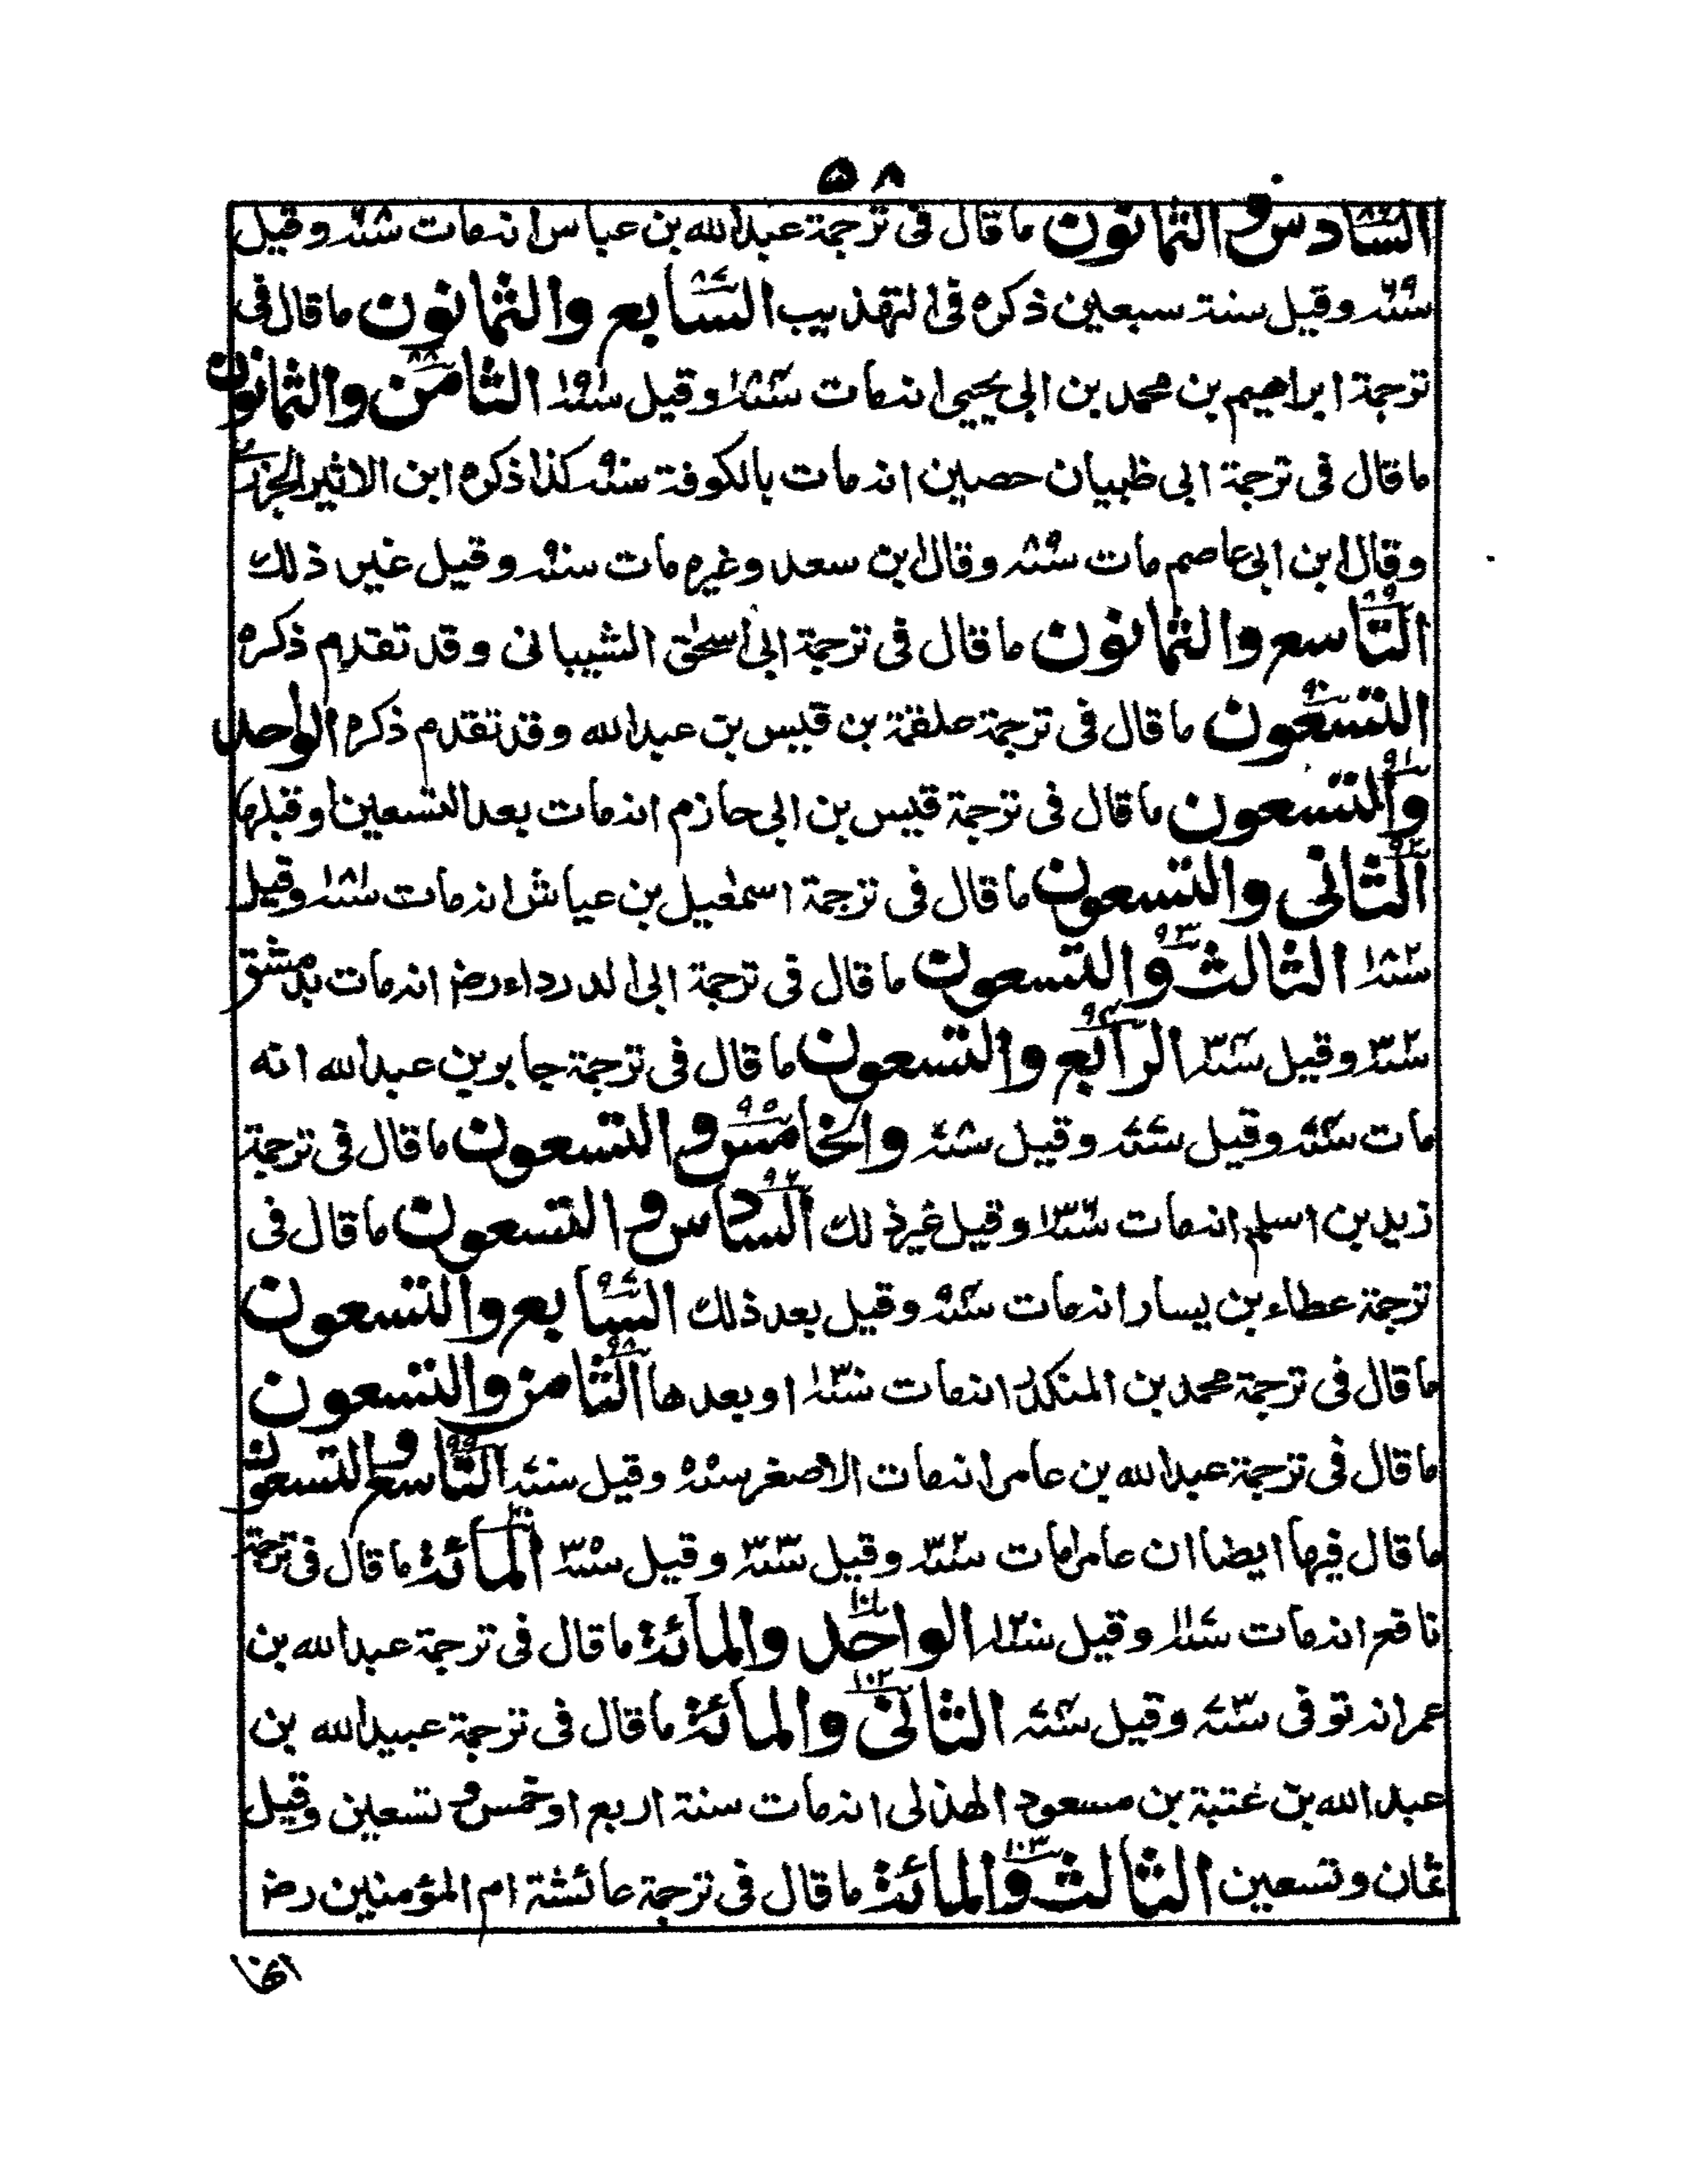 ٥٨
السادس والثمانون ما قال فی ترجمة عبدالله بن عباس انه مات سنة ٦٨ وقیل
سنة ٦٩ وقیل سنة سبعین ذکره فی التهذیب السابع والثمانون ما قال فی
ترجمة ابراهیم بن محمد بن ابی یحیی انه مات سنة ١٨٤ وقیل سنة ١٩١ الثامن والثمانون
ما قال فی ترجمة ابی ظبیان حصین انه مات بالکوفة سنة ٩٠ کذا ذکره ابن الاثیر الجزری
وقال ابن ابی عاصم مات سنة ٨٩ وقال ابن سعد وغیره مات سنة ٩٠ وقیل غیر ذلك
التاسع والثمانون ما قال فی ترجمة ابی اسحٰق الشیبانی وقد تقدم ذکره
التسعون ما قال فی ترجمة علقمة بن قیس بن عبدالله وقد تقدم ذکره الواحد
والتسعون ما قال فی ترجمة قیس بن ابی حازم انه مات بعد التسعین او قبلها
الثانی والتسعون ما قال فی ترجمة اسمٰعیل بن عیاش انه مات سنة ١٨١ وقیل
سنة ١٨٢ الثالث والتسعون ما قال فی ترجمة ابی الدرداء رضـ انه مات بدمشق
سنة ٣٢ وقیل سنة ٣٤ الرابع والتسعون ما قال فی ترجمة جابر بن عبدالله انه
مات سنة ٧٤ وقیل سنة ٧٧ وقیل سنة ٧٨ والخامس والتسعون ما قال فی ترجمة
زید بن اسلم انه مات سنة ١٣٦ وقیل غیر ذلك السادس والتسعون ما قال فی
ترجمة عطاء بن یسار انه مات سنة ٩٤ وقیل بعد ذلك السابع والتسعون
ما قال فی ترجمة محمد بن المنکدر انه مات سنة ١٣٠ او بعدها الثامن والتسعون
ما قال فی ترجمة عبدالله بن عامر انه مات الاصغر وقیل التاسع والتسعون
ما قال فیها ایضا ان عامرا مات سنة ٣٢ وقیل سنة ٣٣ وقیل سنة ٣٥ المائة ما قال فی ترجمة
نافع انه مات سنة ١١٧ وقیل سنة ١٢٠ الواحد والمائة ما قال فی ترجمة عبدالله بن
عمر انه توفی سنة ٧٣ وقیل سنة ٧٤ الثانی والمائة ما قال فی ترجمة عبیدالله بن
عبدالله بن عتبة بن مسعود الهذلی انه مات سنة اربع او خمس وتسعین وقیل
ثمان وتسعین الثالث والمائة ما قال فی ترجمة عائشة ام المؤمنین رضـ
انها